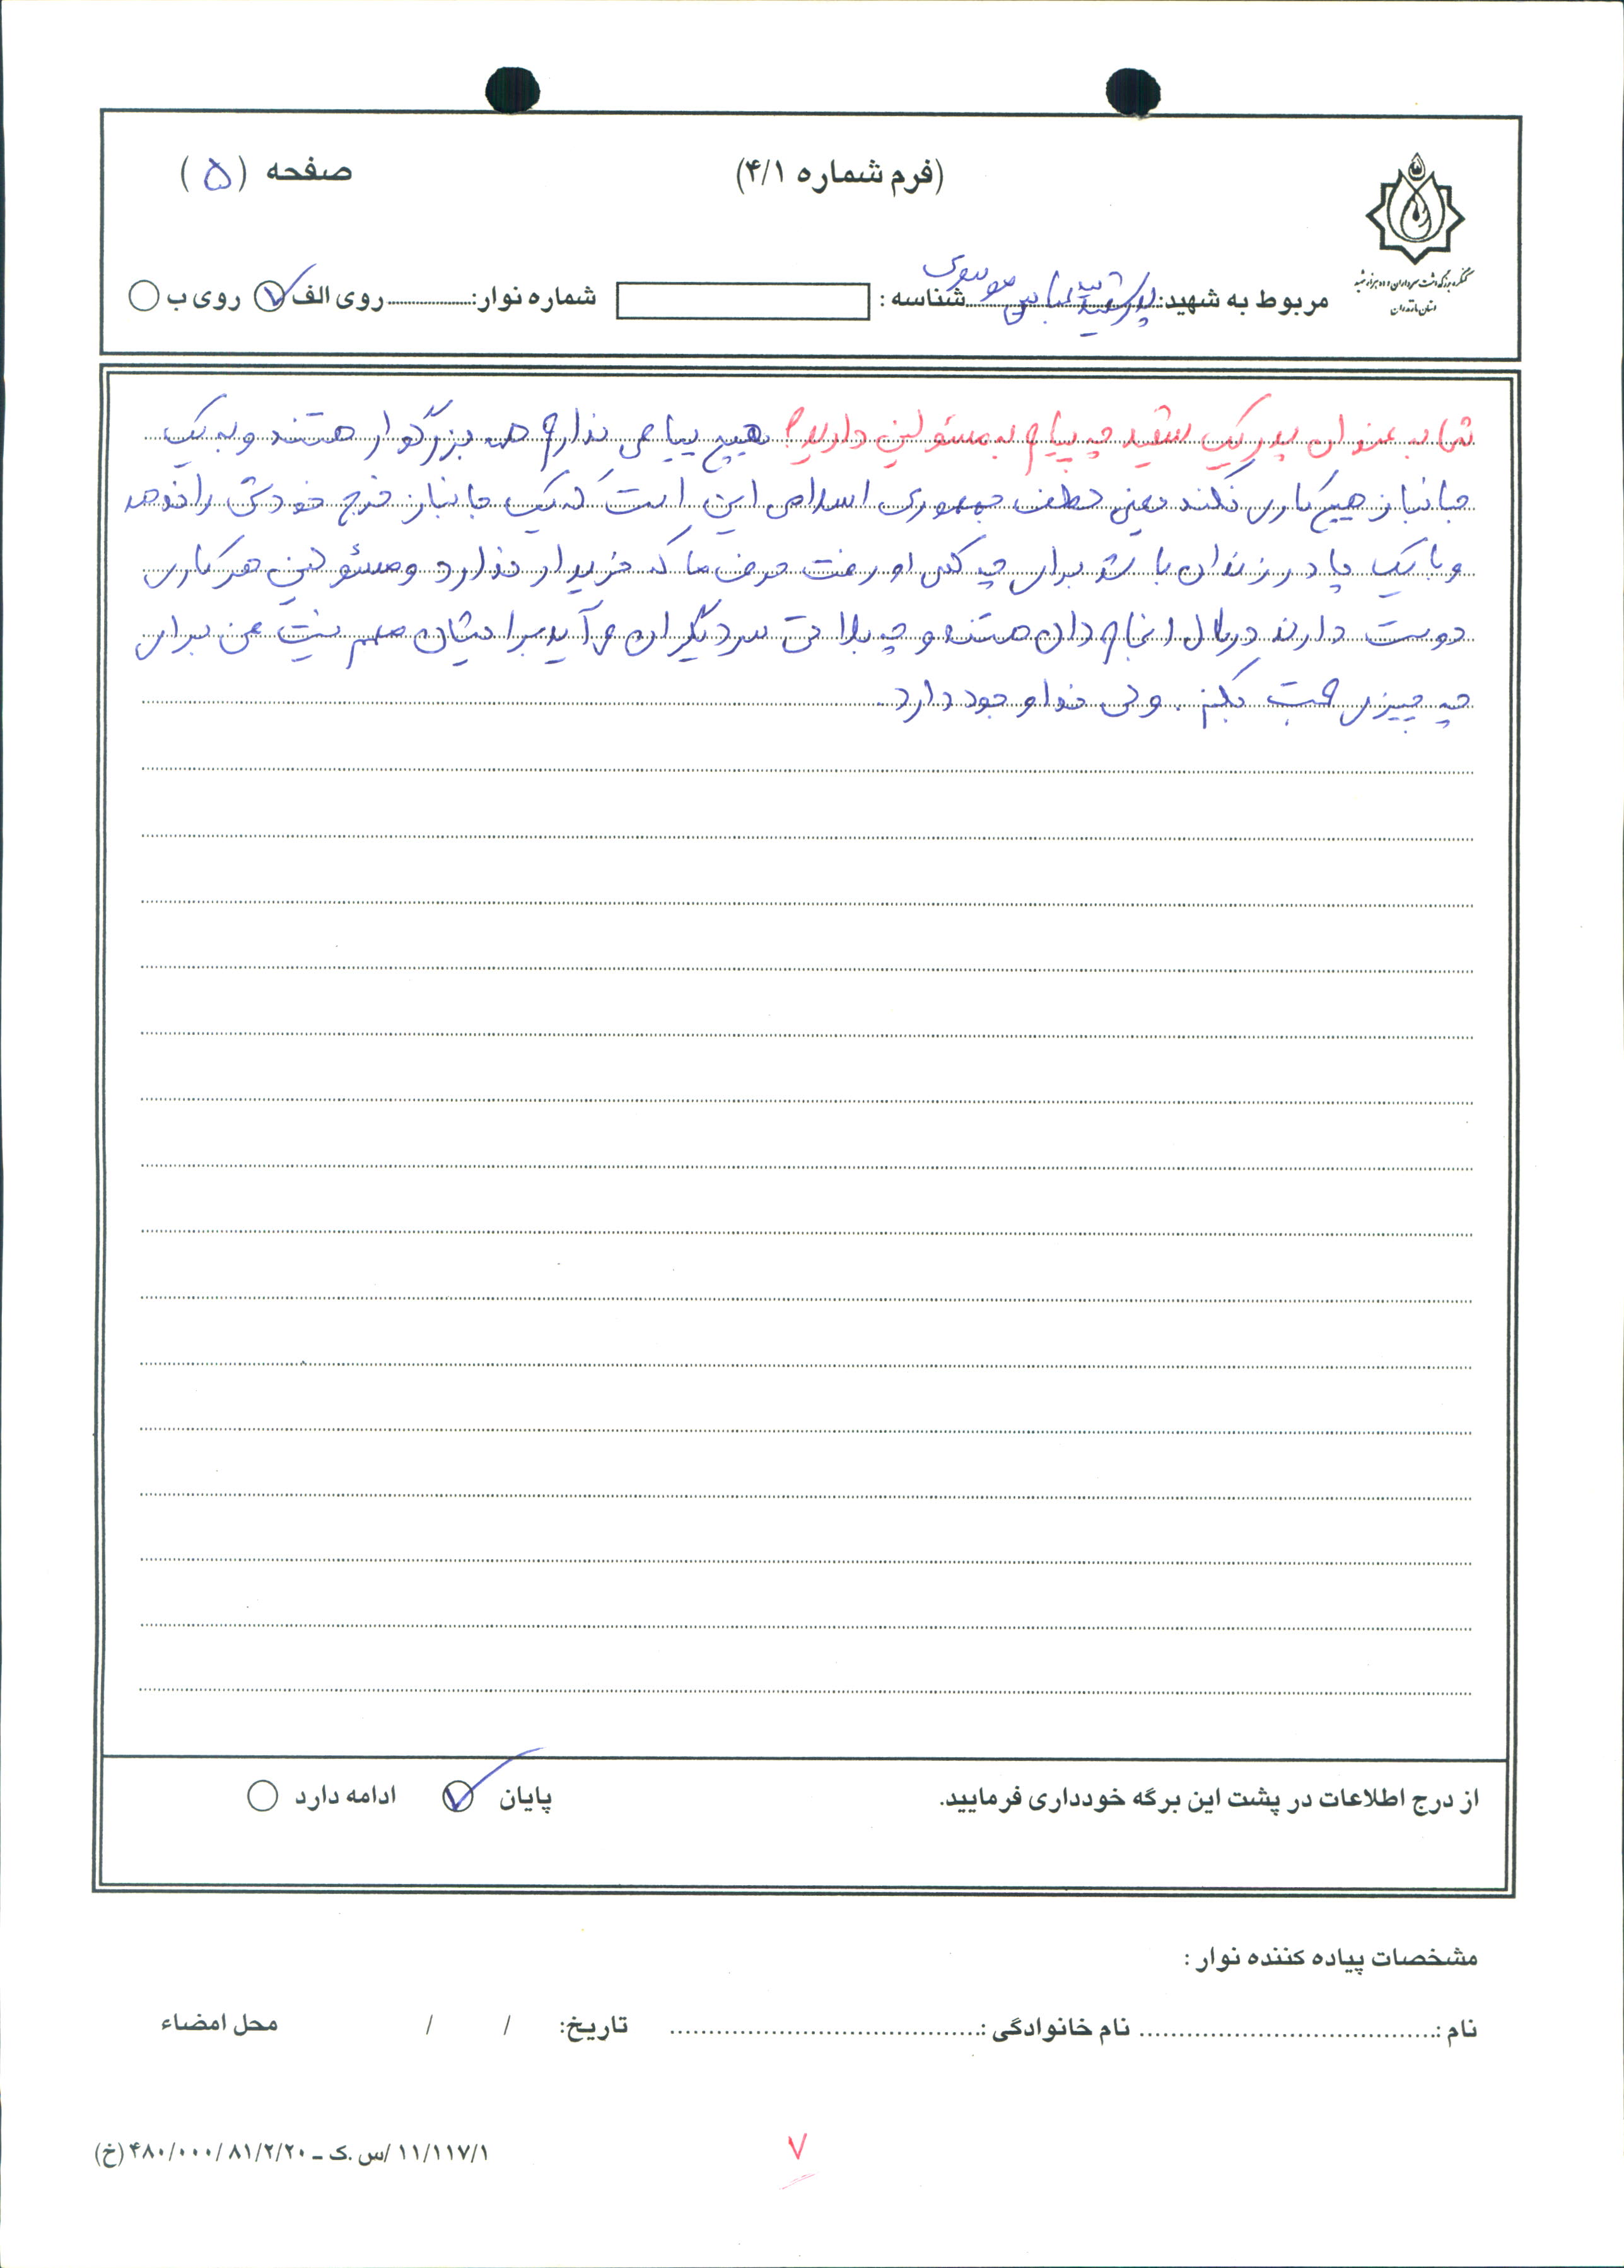 (فرم شماره ۴/۱)
صفحه (۵)
کنگره بزرگداشت سرداران و ده هزار شهید
استان مازندران
مربوط به شهید: پدر شهید عباس موسوی شناسه : شماره نوار: روی الف روی ب
شما به عنوان پدر یک شهید چه پیام به مسئولین دارید؟ هیچ پیامی ندارم همه بزرگوار هستند و به یک
جانباز هیچ کاری نکنند یعنی لطف جمهوری اسلامی این است که یک جانباز خرج خودش را ندهد
و با یک پا در زندان باشد برای چه کسی او رفت حرف ما که خریدار ندارد و مسئولین هر کاری
دوست دارند در حال انجام دادن هستند و چه بلائی سر دیگران می آید برایشان مهم نیست من برای
چه چیزی صحبت بکنم . ولی خدا وجود دارد
از درج اطلاعات در پشت این برگه خودداری فرمایید.
پایان ادامه دارد
مشخصات پیاده کننده نوار :
نام : نام خانوادگی : تاریخ: / / محل امضاء
۱۱/۱۱۷/۱ /س.ک ـ ۴۸۰/۰۰۰/۸۱/۲/۲۰ (خ)
۷